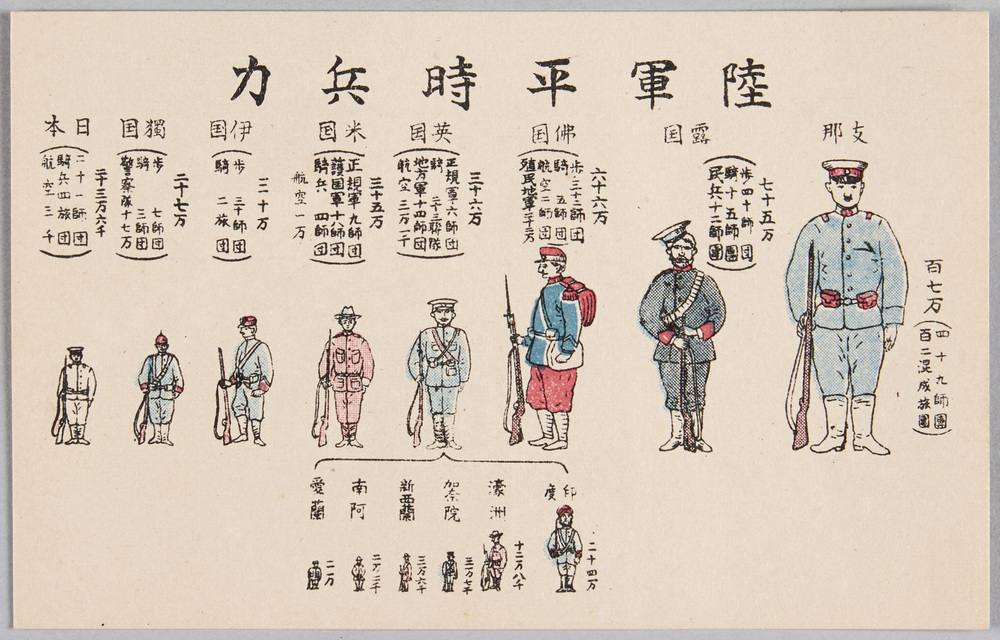 陸軍平時兵力
支那
百七万
四十九師團
百二混成旅團
露国
七十五万
歩四十師団
騎十五師團
民兵十二師團
佛国
六十六万
歩三十三師団
騎五師団
航空二師団
殖民地軍二十三万
英国
三十六万
正規軍六師団
騎二十三聯隊
地方軍十四師団
航空三万一千
米国
三十五万
正規軍九師団
護国軍十師団
騎兵四師団
航空一万
伊国
三十万
歩三十師団
騎二旅団
獨国
二十七万
歩七師団
騎三師団
警察隊十七万
日本
二十三万六千
二十一師団
騎兵四旅団
航空三千
印度
二十四万
濠洲
十二万八千
加奈院
三万七千
新西蘭
三万六千
南阿
二万二千
愛蘭
二万